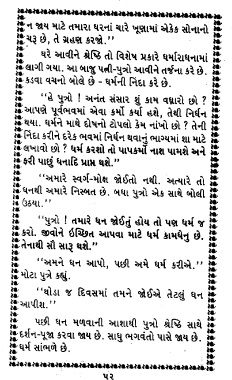 ન જાય માટે તમારા ઘરનાં ચારે ખૂણામાં એકેક સોનાનો
ચરૂ છે, તે ગ્રહણ કરજો.”
ઘરે આવીને શ્રેષ્ઠિ તો વિશેષ પ્રકારે ધર્મારાધનામાં
લાગી ગયા. આ બાજુ પત્ની-પુત્રો આવીને તર્જના કરે છે.
કડવા વચનો બોલે છે - ધર્મની નિંદા કરે છે.
“હે પુત્રો ! અનંત સંસાર શું કામ વધારો છો ?
આપણે પૂર્વભવમાં એવા કર્મો કર્યાં હશે, તેથી નિર્ધન
થયા. ધર્મને માથે દોષનો ટોપલો કેમ નાંખો છો ? તેની
નિંદા કરીને દરેક ભવમાં નિર્ધન થવાનું ભાગ્યમાં શા માટે
લખાવો છો ? ધર્મ કરશો તો પાપકર્મો નાશ પામશે અને
ફરી પાછું ધનાદિ પ્રાપ્ત થશે.”
“અમારે સ્વર્ગ-મોક્ષ જોઈતો નથી. અત્યારે તો
ધનથી અમારે નિસ્બત છે. બધા પુત્રો એક સાથે બોલી
ઉઠ્યા.”
“પુત્રો ! તમારે ધન જોઈતું હોય તો પણ ધર્મ જ
કરો. જીવોને ઇચ્છિત આપવા માટે ધર્મ કામધેનુ છે.
તેનાથી સૌ સારૂ થશે.”
“અમને ધન આપો, પછી અમે ધર્મ કરીએ.”
મોટા પુત્રે કહ્યું.
“થોડા જ દિવસમાં તમને જોઈએ તેટલું ધન
આપીશ.”
પછી ધન મળવાની આશાથી પુત્રો શ્રેષ્ઠિ સાથે
દર્શન-પૂજા કરવા જાય છે. સાધુ ભગવંતો પાસે જાય છે.
ધર્મ સાંભળે છે.
૫૨